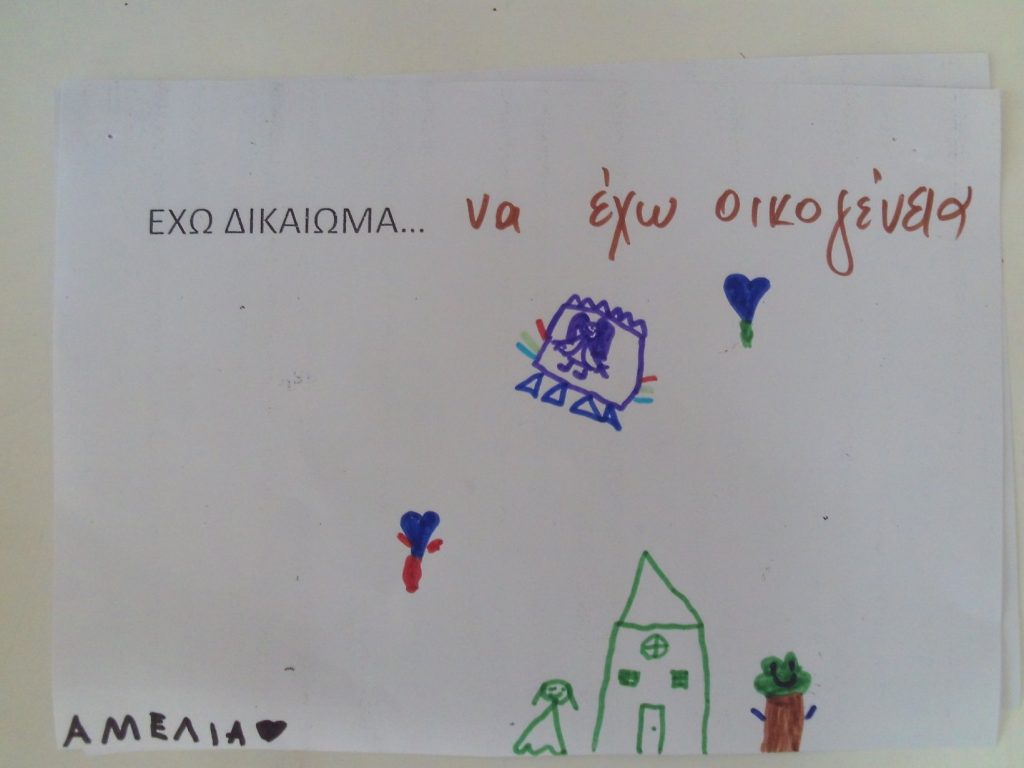 ΕΧΩ ΔΙΚΑΙΩΜΑ... να έχω οικογένεια
ΑΜΕΛΙΑ